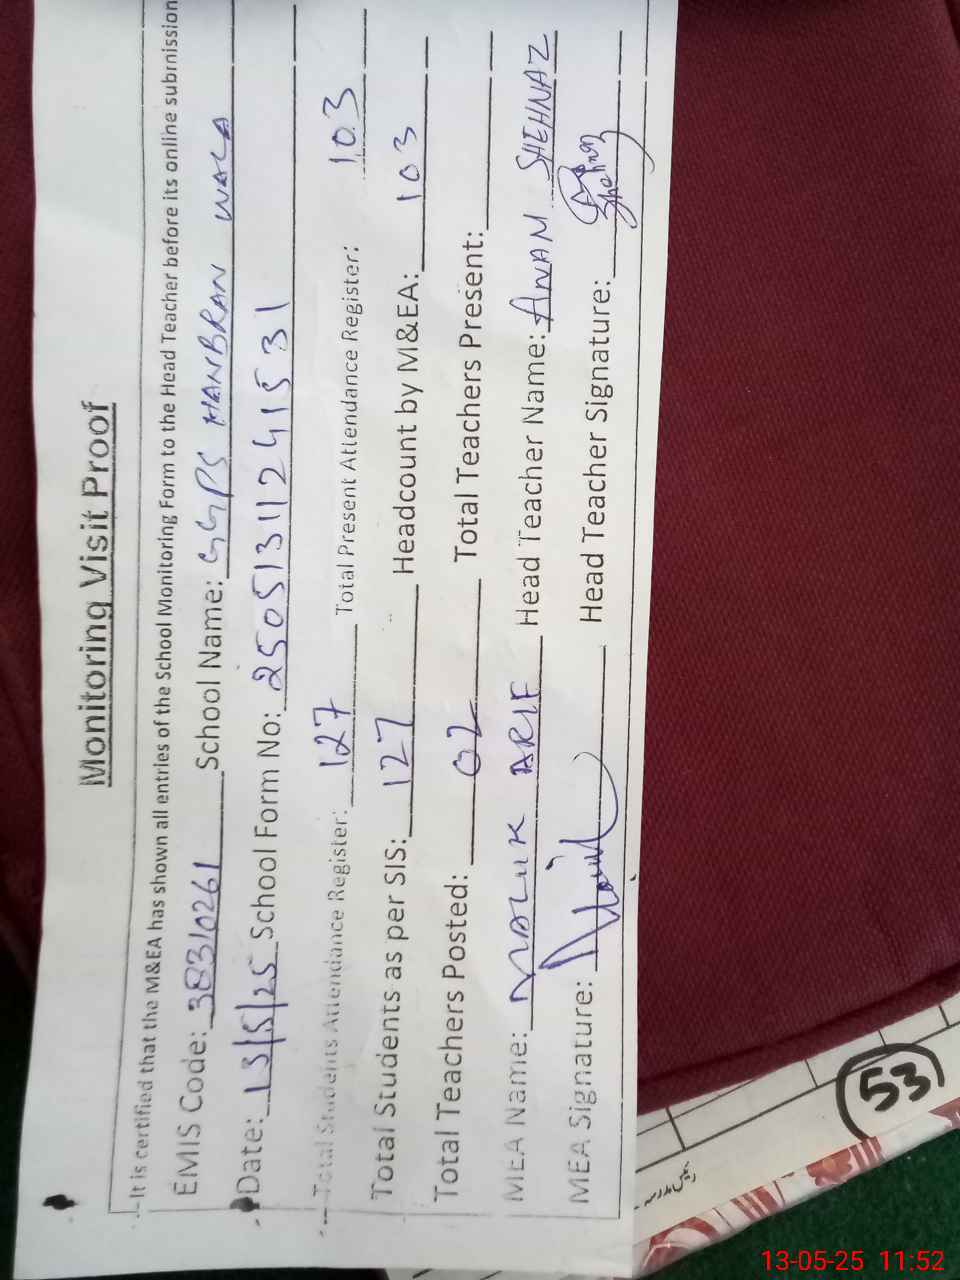 Monitoring Visit Proof
It is certified that the M&EA has shown all entries of the School Monitoring Form to the Head Teacher before its online submission
EMIS Code: 38310261 School Name: GGPS HANBRAN WALA
Date: 13/5/25 School Form No: 25051311241531
Total Students Attendance Register: 127 Total Present Attendance Register: 103
Total Students as per SIS: 127 Headcount by M&EA: 103
Total Teachers Posted: 02 Total Teachers Present:
MEA Name: MALIK ARIF Head Teacher Name: ANAM SHEHNAZ
MEA Signature: Head Teacher Signature: Shehnaz
53
رئیس مدرسہ
13-05-25 11:52